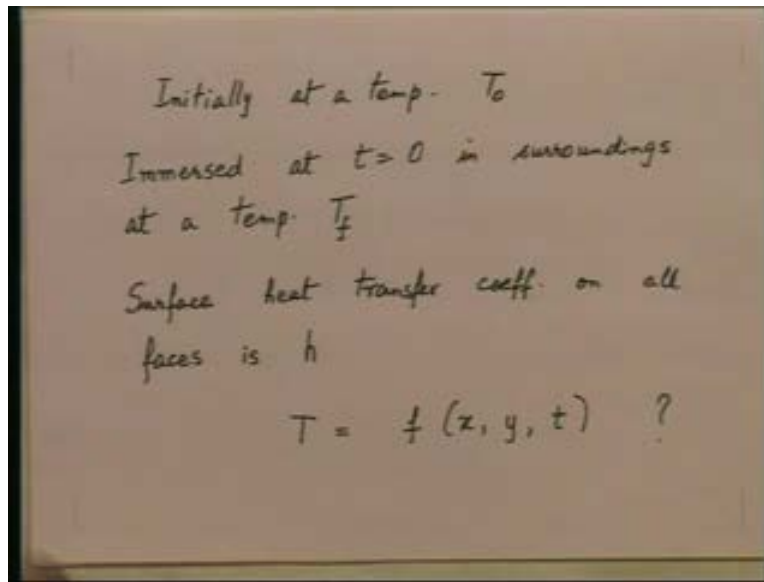 Initially at a temp. T₀
Immersed at t=0 in surroundings
at a temp. T_f
Surface heat transfer coeff. on all
faces is h
T = f (x, y, t) ?